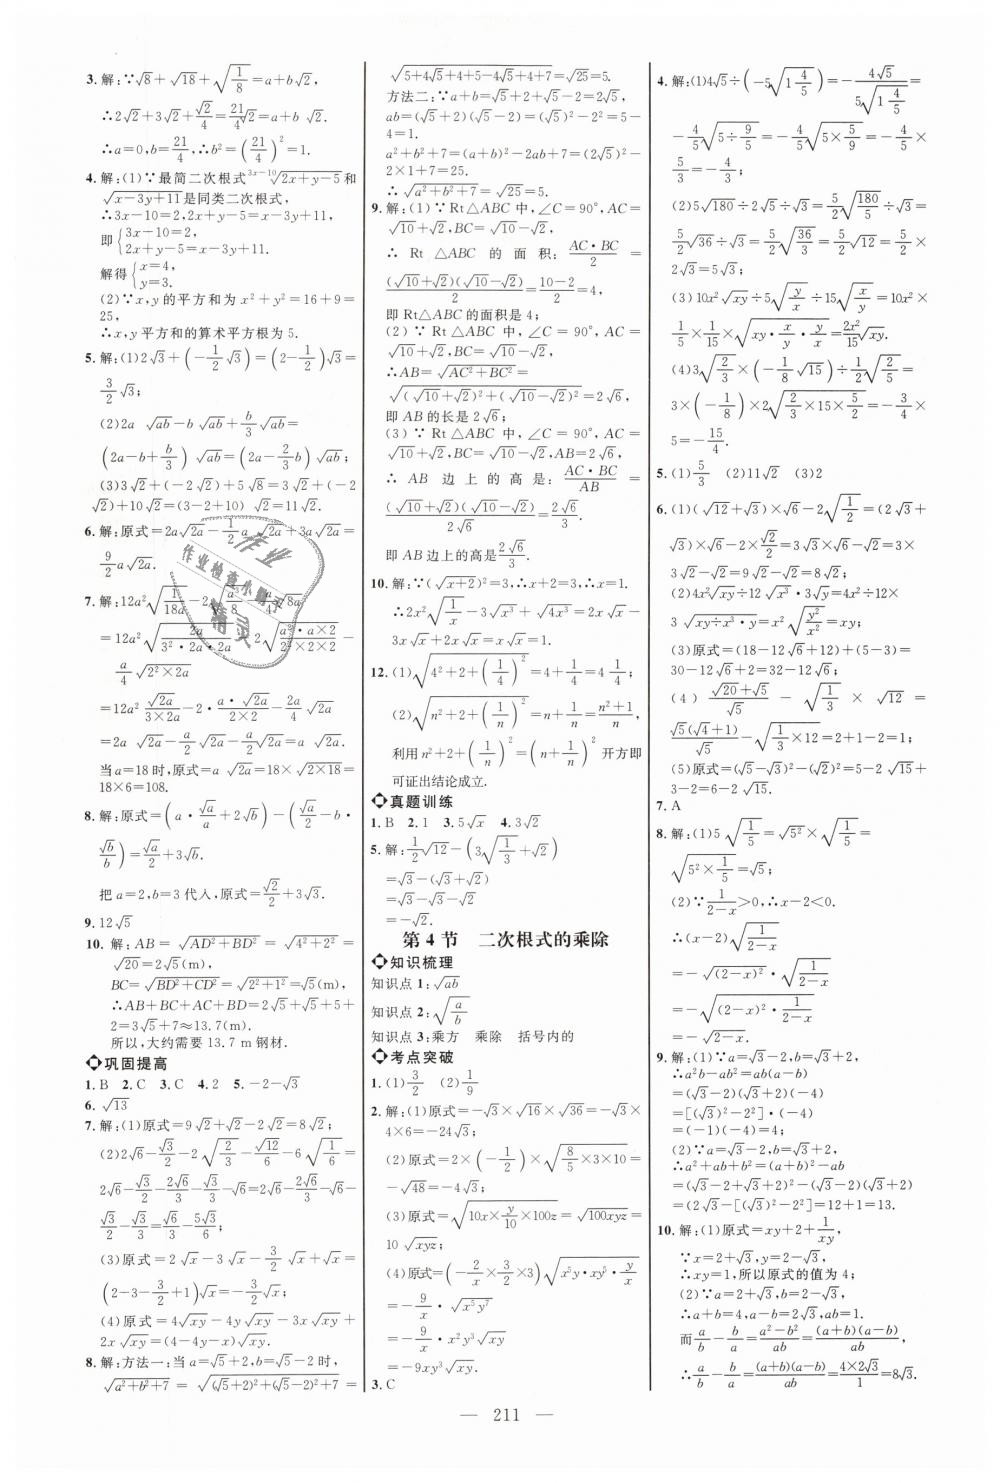 3. 解:∵√8+√18+√(1/8)=a+b√2,
∴2√2+3√2+√2/4=21/4√2=a+b√2.
∴a=0,b=21/4,∴b²=(21/4)²=1.
4. 解:(1)∵最简二次根式 ³ˣ⁻¹⁰√(2x+y-5)和
√(x-3y+11)是同类二次根式,
∴3x-10=2,2x+y-5=x-3y+11,
即{3x-10=2,
2x+y-5=x-3y+11.
解得{x=4,
y=3.
(2)∵x,y的平方和为x²+y²=16+9=
25,
∴x,y平方和的算术平方根为5.
5. 解:(1)2√3+(-1/2√3)=(2-1/2)√3=
3/2√3;
(2)2a√ab-b√ab+b/3√ab=
(2a-b+b/3)√ab=(2a-2/3b)√ab;
(3)3√2+(-2√2)+5√8=3√2+(-2
√2)+10√2=(3-2+10)√2=11√2.
6. 解:原式=2a√2a-1/2a√2a+3a√2a=
9/2a√2a.
=12a²√(2a/(3²·2a·2a))
a/4√(2²×2a)
=12a²·√2a/(3×2a)-2·a·√2a/(2×2)-2a/4√2a
=2a√2a-a/2√2a-a/2√2a=a√2a.
当a=18时,原式=a√2a=18×√(2×18)=
18×6=108.
8. 解:原式=(a·√a/a+2√b)-(√a/2-b·
√b/b)=√a/2+3√b.
把a=2,b=3代入,原式=√2/2+3√3.
9. 12√5
10. 解:AB=√(AD²+BD²)=√(4²+2²)=
√20=2√5(m),
BC=√(BD²+CD²)=√(2²+1²)=√5(m),
∴AB+BC+AC+BD=2√5+√5+5+
2=3√5+7≈13.7(m).
所以,大约需要13.7 m钢材.
巩固提高
1. B 2. C 3. C 4. 2 5. -2-√3
6. √13
7. 解:(1)原式=9√2+√2-2√2=8√2;
(2)2√6-√3/2-2√(2/3)-√12/6-6√(1/6)=
2√6-√3/2-2√6/3-√3/3-√6=2√6-2√6/3-√6-
√3/2-√3/3=√6/3-5√3/6;
(3)原式=2√x-3√x-3/2√x+√x=
(2-3-3/2+1)√x=-3/2√x;
(4)原式=4√xy-4y√xy-3x√xy+
2x√xy=(4-4y-x)√xy.
8. 解:方法一:当a=√5+2,b=√5-2时,
√(a²+b²+7)=√((√5+2)²+(√5-2)²+7)=
√(5+4√5+4+5-4√5+4+7)=√25=5.
方法二:∵a+b=√5+2+√5-2=2√5,
ab=(√5+2)(√5-2)=(√5)²-2²=5-
4=1.
a²+b²+7=(a+b)²-2ab+7=(2√5)²-
2×1+7=25.
∴√(a²+b²+7)=√25=5.
9. 解:(1)∵Rt△ABC中,∠C=90°,AC=
√10+√2,BC=√10-√2,
∴Rt△ABC的面积:AC·BC/2=
(√10+√2)(√10-√2)/2=(10-2)/2=4,
即Rt△ABC的面积是4;
(2)∵Rt△ABC中,∠C=90°,AC=
√10+√2,BC=√10-√2,
∴AB=√(AC²+BC²)=
√((√10+√2)²+(√10-√2)²)=2√6,
即AB的长是2√6;
(3)∵Rt△ABC中,∠C=90°,AC=
√10+√2,BC=√10-√2,AB=2√6,
∴AB边上的高是:AC·BC/AB=
(√10+√2)(√10-√2)/2√6=2√6/3.
即AB边上的高是2√6/3.
10. 解:∵(√(x+2))²=3,∴x+2=3,∴x=1.
∴2x²√(1/x)-3√x³+√4x³=2x√x-
3x√x+2x√x=x√x=1.
12. (1)√(4²+2+(1/4)²)=4+1/4=4 1/4;
(2)√(n²+2+(1/n)²)=n+1/n=(n²+1)/n,
利用n²+2+(1/n)²=(n+1/n)²开方即
可证出结论成立.
真题训练
1. B 2. 1 3. 5√x 4. 3√2
5. 解:1/2√12-(3√(1/3)+√2)
=√3-(√3+√2)
=√3-√3-√2
=-√2.
第4节 二次根式的乘除
知识梳理
知识点1:√ab
知识点2:√(a/b)
知识点3:乘方 乘除 括号内的
考点突破
1. (1)3/2 (2)1/9
2. 解:(1)原式=-√3×√16×√36=-√3×
4×6=-24√3;
(2)原式=2×(-1/2)×√(8/5×3×10)=
-√48=-4√3;
(3)原式=√(10x×y/10×100z)=√100xyz=
10√xyz;
(4)原式=(-2/x×3/2×3)√(x⁵y·xy⁵·y/x)
=-9/x·√(x⁵y⁷)
=-9/x·x²y³√xy
=-9xy³√xy.
3. C
4. 解:(1)4√5÷(-5√(1 4/5))=-4√5/(5√(1 4/5))=
-4/5√(5÷9/5)=-4/5√(5×5/9)=-4/5×
5/3=-4/3;
(2)5√180÷2√5÷√3=5/2√(180/5)÷√3=
5/2√36÷√3=5/2√(36/3)=5/2√12=5/2×
2√3=5√3;
(3)10x²√xy÷5√(y/x)÷15√(x/y)=10x²×
1/5×1/15×√(xy·x/y·y/x)=2x²/15√xy.
(4)3√(2/3)×(-1/8√15)÷1/2√(2/5)=
3×(-1/8)×2√(2/3×15×5/2)=-3/4×
5=-15/4.
5. (1)5/3 (2)11√2 (3)2
6. (1)(√12+√3)×√6-2√(1/2)=(2√3+
√3)×√6-2×√2/2=3√3×√6-√2=3×
3√2-√2=9√2-√2=8√2;
(2)4x²√xy÷12√x³·3√y=4x²÷12×
3√(xy÷x³·y)=x²√(y²/x²)=xy;
(3)原式=(18-12√6+12)+(5-3)=
30-12√6+2=32-12√6;
(4)(√20+√5)/√5-√(1/3)×√12=
√5(√4+1)/√5-√(1/3×12)=2+1-2=1;
(5)原式=(√5-√3)²-(√2)²=5-2√15+
3-2=6-2√15.
7. A
8. 解:(1)5√(1/5)=√5²×√(1/5)=
√(5²×1/5)=√5;
(2)∵1/(2-x)>0,∴x-2<0.
∴(x-2)√(1/(2-x))
=-√(2-x)²·√(1/(2-x))
=-√((2-x)²·1/(2-x))
=-√(2-x).
9. 解:(1)∵a=√3-2,b=√3+2,
∴a²b-ab²=ab(a-b)
=(√3-2)(√3+2)(-4)
=[(√3)²-2²]·(-4)
=(-1)(-4)=4;
(2)∵a=√3-2,b=√3+2,
∴a²+ab+b²=(a+b)²-ab
=(√3-2+√3+2)²-(√3-2)(√3+2)
=(2√3-[(√3)²-2²]=12+1=13.
10. 解:(1)原式=xy+2+1/xy,
∵x=2+√3,y=2-√3,
∴xy=1,所以原式的值为4;
(2)∵a=2+√3,b=2-√3,
∴a+b=4,a-b=2√3,ab=1.
而a/b-b/a=(a²-b²)/ab=(a+b)(a-b)/ab,
∴a/b-b/a=(a+b)(a-b)/ab=4×2√3/1=8√3.
— 211 —
作业
作业检查小帮手
精灵